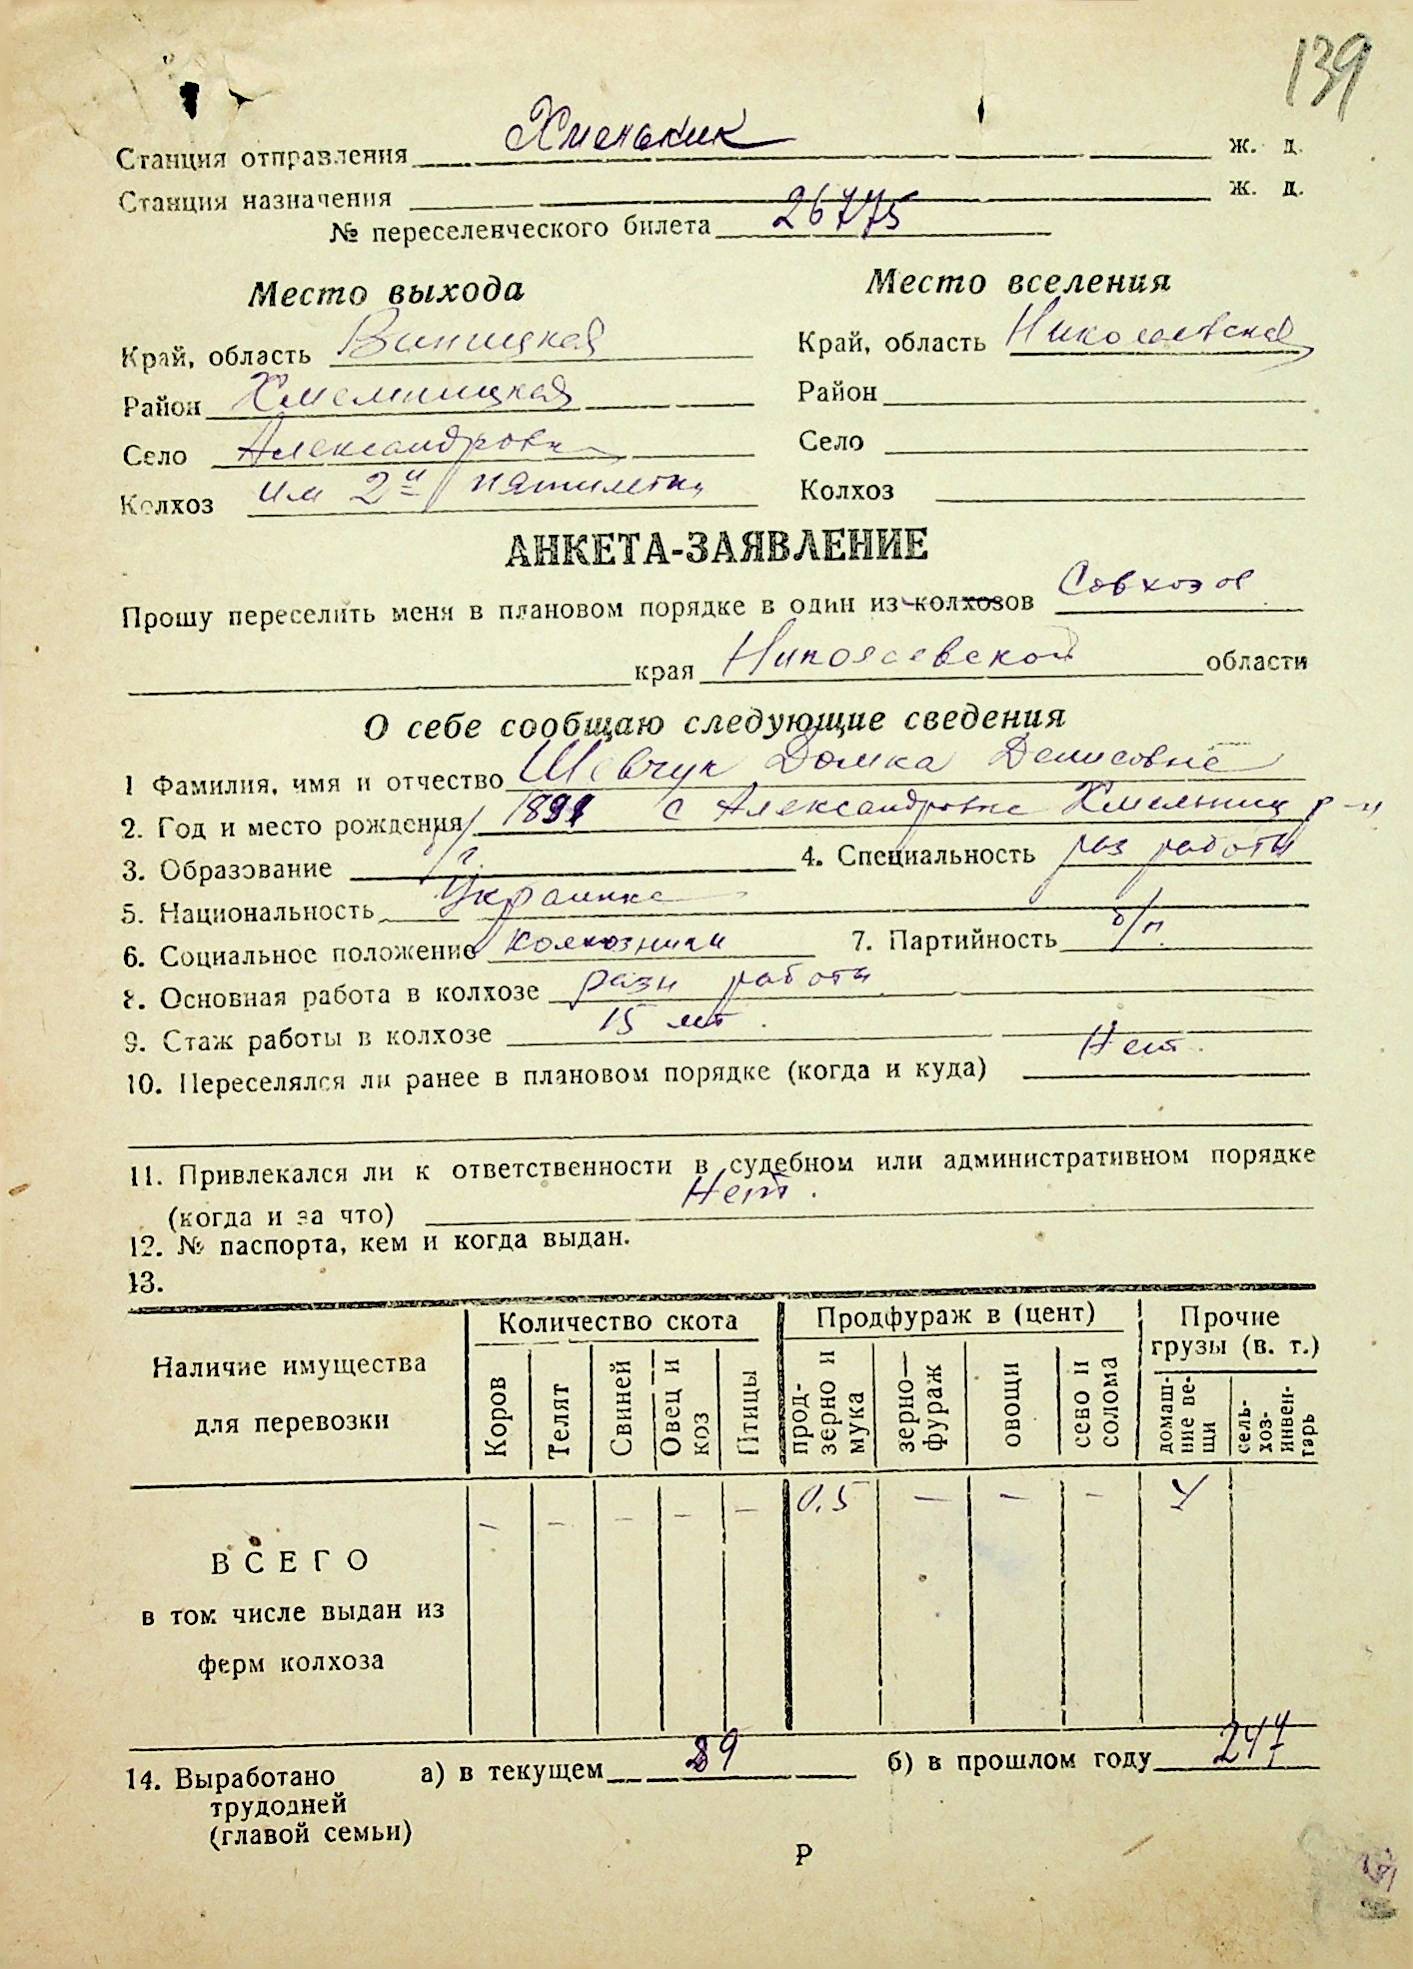 139
Станция отправления Хмельник ж. д.
Станция назначения ж. д.
№ переселенческого билета 26775
Место выхода
Край, область Виницкая
Район Хмельницкая
Село Александровк
Колхоз им 2й пятилетки
Место вселения
Край, область Николаевская
Район
Село
Колхоз
АНКЕТА-ЗАЯВЛЕНИЕ
Прошу переселить меня в плановом порядке в один из колхозов Совхозов
края Николаевской области
О себе сообщаю следующие сведения
1 Фамилия, имя и отчество Шевчук Домка Денисовна
2. Год и место рождения 1891 с Александровке Хмельниц р-н
3. Образование 4. Специальность раз работы
5. Национальность Украинка
6. Социальное положение колхозники 7. Партийность б/п.
8. Основная работа в колхозе разн работы
9. Стаж работы в колхозе 15 лет.
10. Переселялся ли ранее в плановом порядке (когда и куда) Нет.
11. Привлекался ли к ответственности в судебном или административном порядке
(когда и за что) Нет.
12. № паспорта, кем и когда выдан.
13.
Наличие имущества для перевозки
Количество скота
Продфураж в (цент)
Прочие грузы (в. т.)
Коров
Телят
Свиней
Овец и коз
Птицы
прод-зерно и мука
зерно—фураж
овощи
сено и солома
домаш-ние ве-щи
сель-хоз-инвен-тарь
ВСЕГО — — — — — 0.5 — — —
в том числе выдан из
ферм колхоза
14. Выработано а) в текущем 89 б) в прошлом году 247
трудодней
(главой семьи)
Р